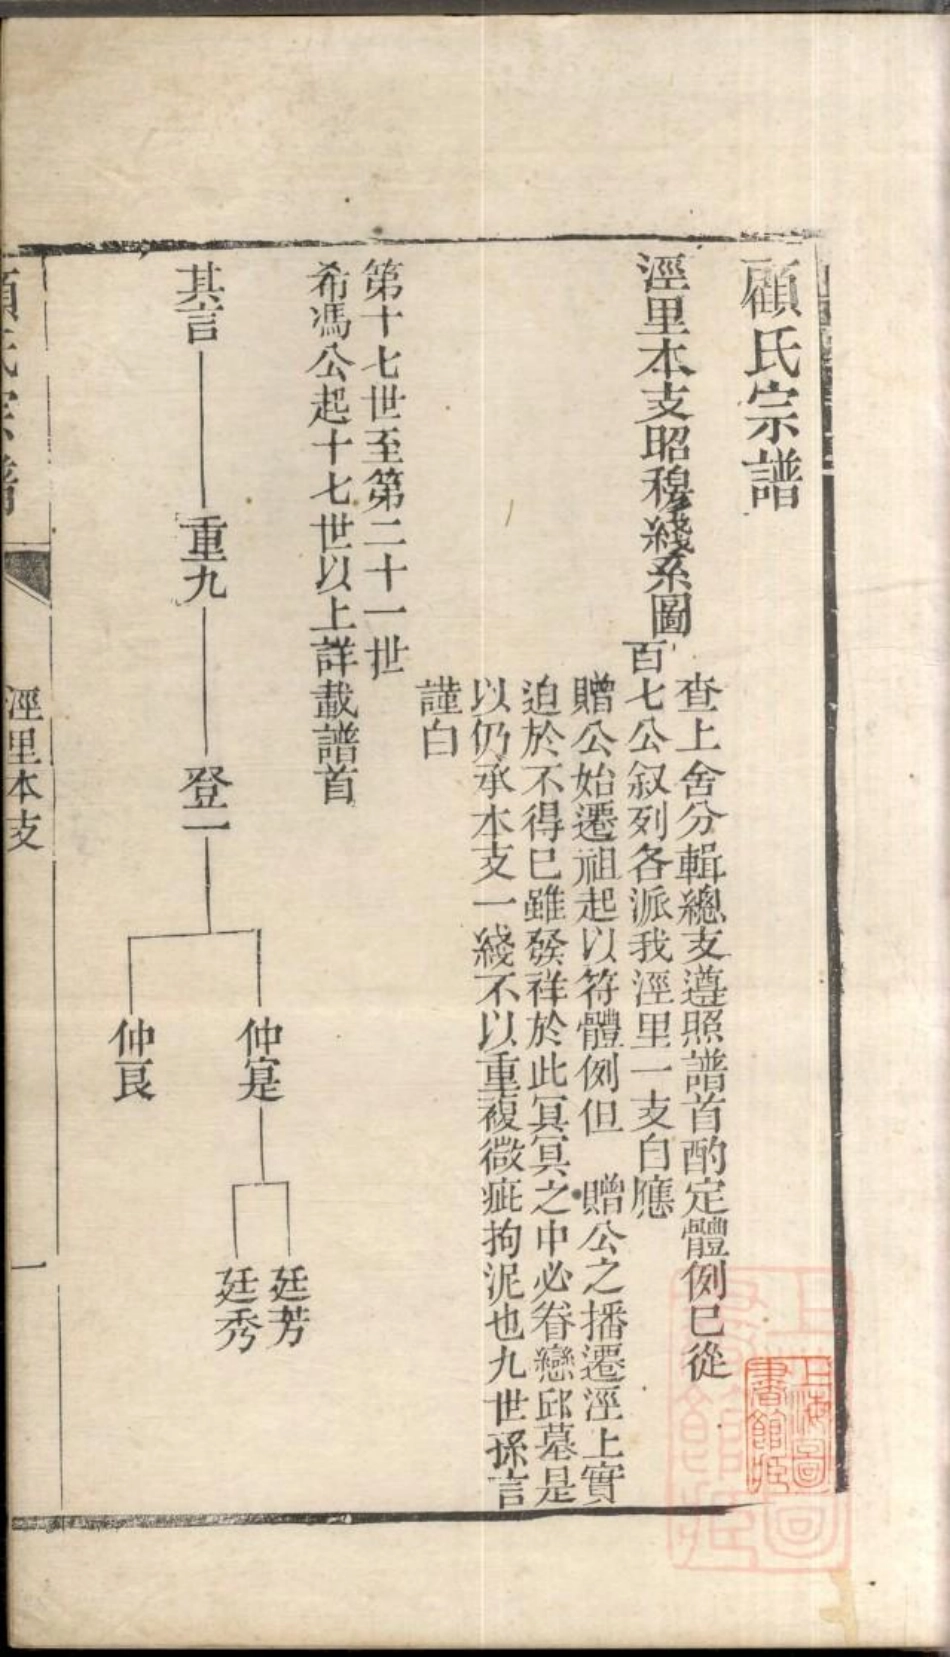 顧氏宗譜
涇里本支昭穆綫系圖
查上舍分輯總支遵照譜首酌定體例已從
百七公叙列各派我涇里一支自應
贈公始遷祖起以符體例但　贈公之播遷涇上實
迫於不得已雖發祥於此冥冥之中必眷戀邱墓是
以仍承本支一綫不以重複微疵拘泥也九世孫言
謹白
第十七世至第二十一世
希馮公起十七世以上詳載譜首
其言
重九
登一
仲寔
仲良
廷芳
廷秀
顧氏宗譜
涇里本支
一
上海圖
書館藏